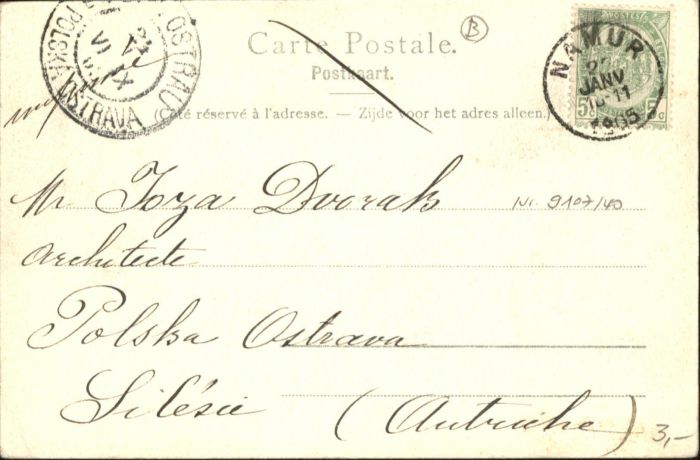 Carte Postale.
B
Postkaart.
(Côté réservé à l'adresse. — Zijde voor het adres alleen.)
POSTES
5c 5c
NAMUR
JANV
10-11
1905
OSTRAU
POLSKÁ OSTRAVA
Mr Joza Dvorak
Nr. 9107/40
Architecte
Polska Ostrava
Silésie (Autriche)
3,-